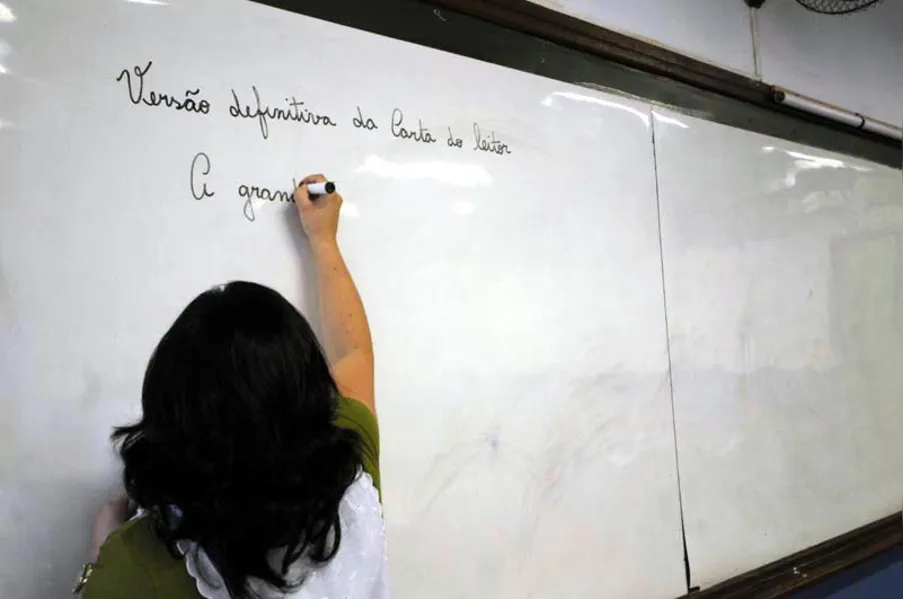 Versão definitiva da Carta do leitor
A grand